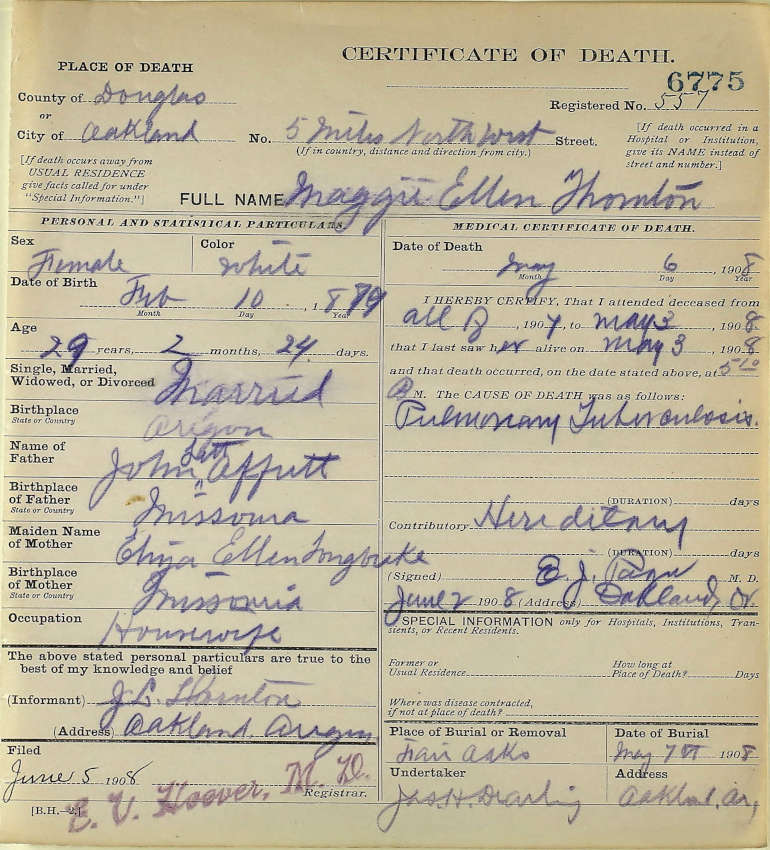 CERTIFICATE OF DEATH.
PLACE OF DEATH
6775
County of Douglas
Registered No. 557
or
City of Oakland
No. 5 Miles North West Street.
(If in country, distance and direction from city.)
[If death occurred in a
Hospital or Institution,
give its NAME instead of
street and number.]
[If death occurs away from
USUAL RESIDENCE
give facts called for under
"Special Information."]
FULL NAME Maggie Ellen Thornton
PERSONAL AND STATISTICAL PARTICULARS.
Sex
Female
Color
White
Date of Birth
Feb 10, 1879
Month Day Year
Age
29 years, 2 months, 24 days.
Single, Married,
Widowed, or Divorced
Married
Birthplace
State or Country
Oregon
Name of
Father
John
Birthplace
of Father
State or Country
Missouria
Maiden Name
of Mother
Eliza Ellen
Birthplace
of Mother
State or Country
Missouria
Occupation
Housewife
The above stated personal particulars are true to the
best of my knowledge and belief
(Informant) J. L. Thornton
(Address) Oakland Oregon
Filed
June 5 1908
E. V. Hoover, M. D.
Registrar.
[B.H.—2.]
MEDICAL CERTIFICATE OF DEATH.
Date of Death
May 6, 1908
Month Day Year
I HEREBY CERTIFY, That I attended deceased from
all of, 1907, to May 3, 1908
that I last saw her alive on May 3, 1908
and that death occurred, on the date stated above, at 5
M. The CAUSE OF DEATH was as follows:
Pulmonary Tuberculosis.
(DURATION) days
Contributory Hereditary
(DURATION) days
(Signed) E. J. M. D.
June 2 1908 (Address) Oakland, Or.
SPECIAL INFORMATION only for Hospitals, Institutions, Tran-
sients, or Recent Residents.
Former or
Usual Residence
How long at
Place of Death? Days
Where was disease contracted,
if not at place of death?
Place of Burial or Removal
Fair Oaks
Date of Burial
May 7th 1908
Undertaker
Jas. H. Dearling
Address
Oakland, Or,